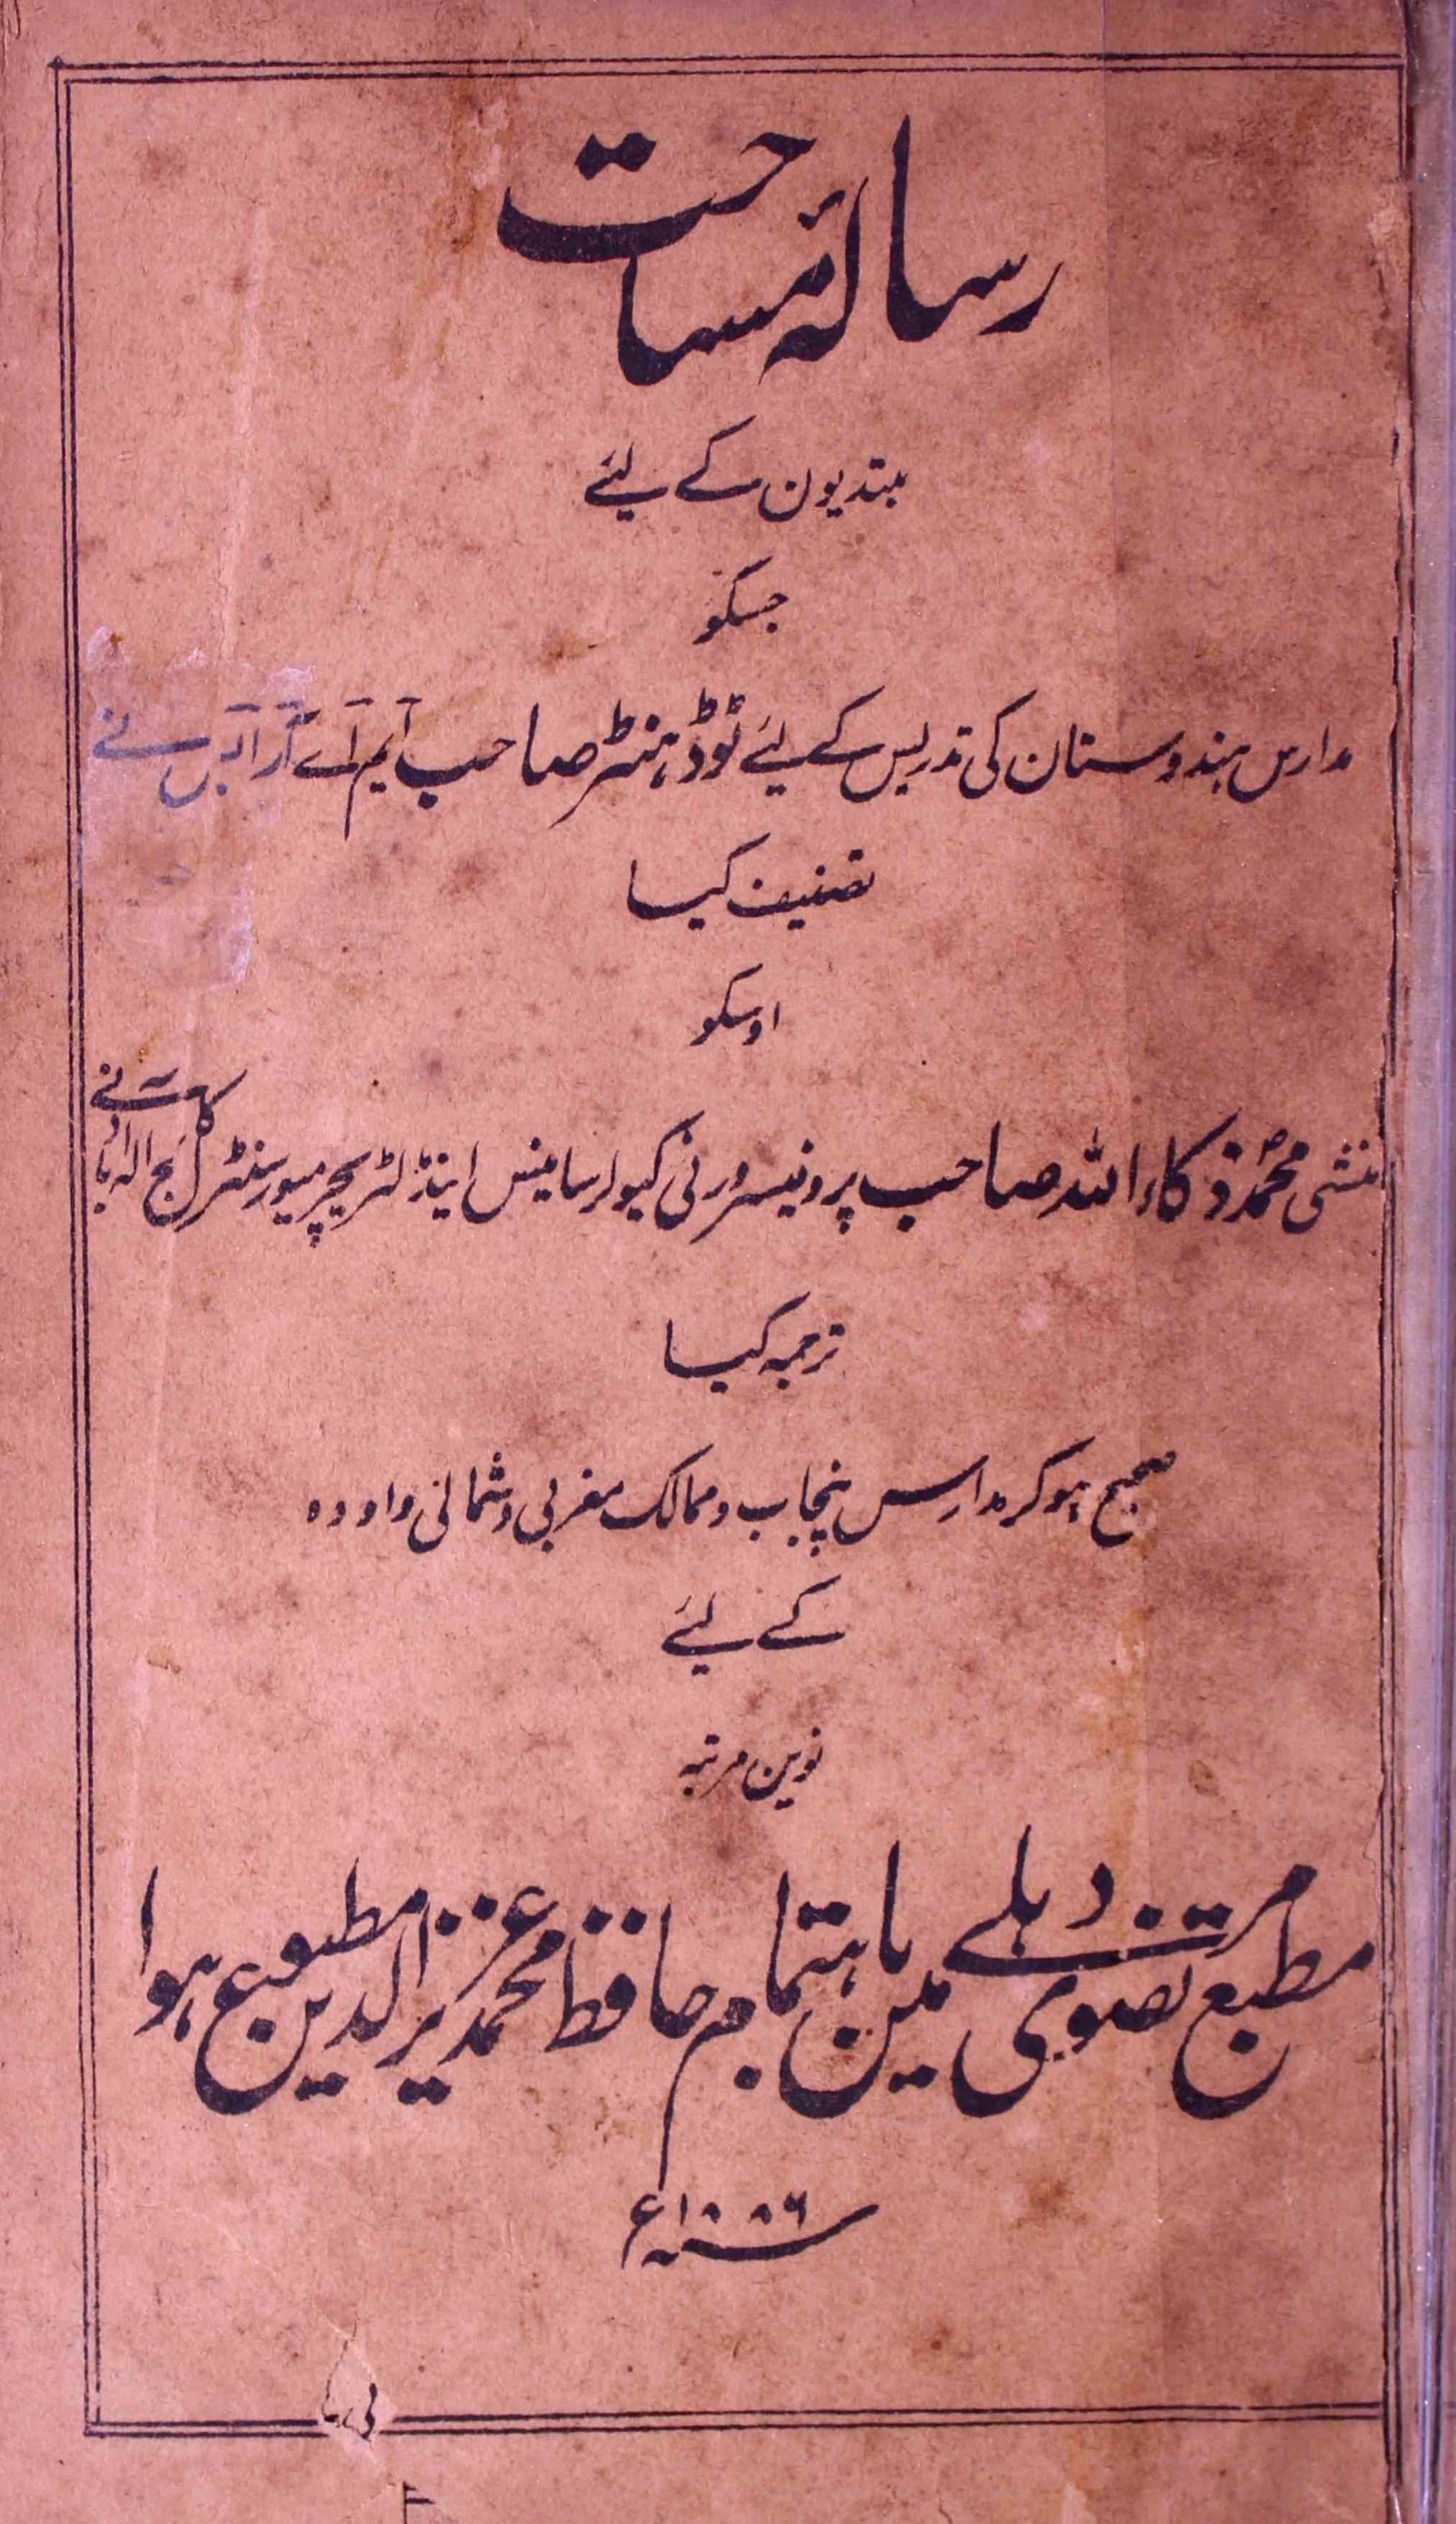 رسالۂ مساحت
مبتدیون کے لیٔے
جسکو
مدارس ہندوستان کی تدریس کے لیٔے ٹوڈہنٹر صاحب ایم اے آر ایس نے
تصنیف کیا
اوسکو
منشی محمد ذکاء اللہ صاحب پروفیسر ورنی کیولر سائنس اینڈ لٹریچر میور سنٹرل کالج الہ آباد نے
ترجمہ کیا
صحیح ہوکر مدارس پنجاب و ممالک مغربی و شمالی و اودہ
کے لیٔے
نوین مرتبہ
مطبع مرتضوی دہلے مین باہتمام حافظ محمد عزیز الدین مطبوع ہوا
سنہ ۱۸۸۶ ع